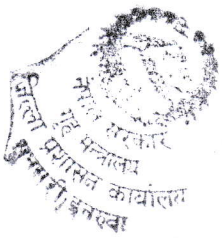 नेपाल सरकार
गृह मन्त्रालय
जिल्ला प्रशासन कार्यालय
इनरुवा